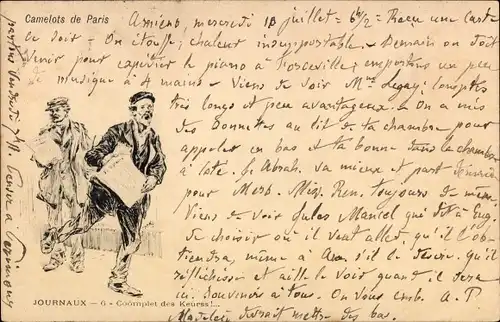 Camelots de Paris
Amiens, mercredi 18 juillet = 6h 1/2 = Reçu une carte
ce soir - On étouffe; chaleur insupportable - Demain on doit
venir pour expédier le piano à Forceville; emportons un peu
de musique à 4 mains - Viens de voir Mme Legay; comptes
très longs et peu avantageux. - On a mis
des sonnettes au lit de ta chambre pour
appeler en bas et ta bonne dans la chambre
à côté. J. Abrah. va mieux et part
pour Mers. Ren. toujours de même
Viens de voir Jules Mancel qui dit à Eug.
de choisir où il veut aller, qu'il l'ob-
tiendra, même à s'il le désire. qu'il
réfléchisse et aille le voir quand il sera
ici. Souvenirs à tous. On vous emb. A. P.
Madeleine devrait mettre des bas.
JOURNAUX — 6 - Coômplet des Keurss!...